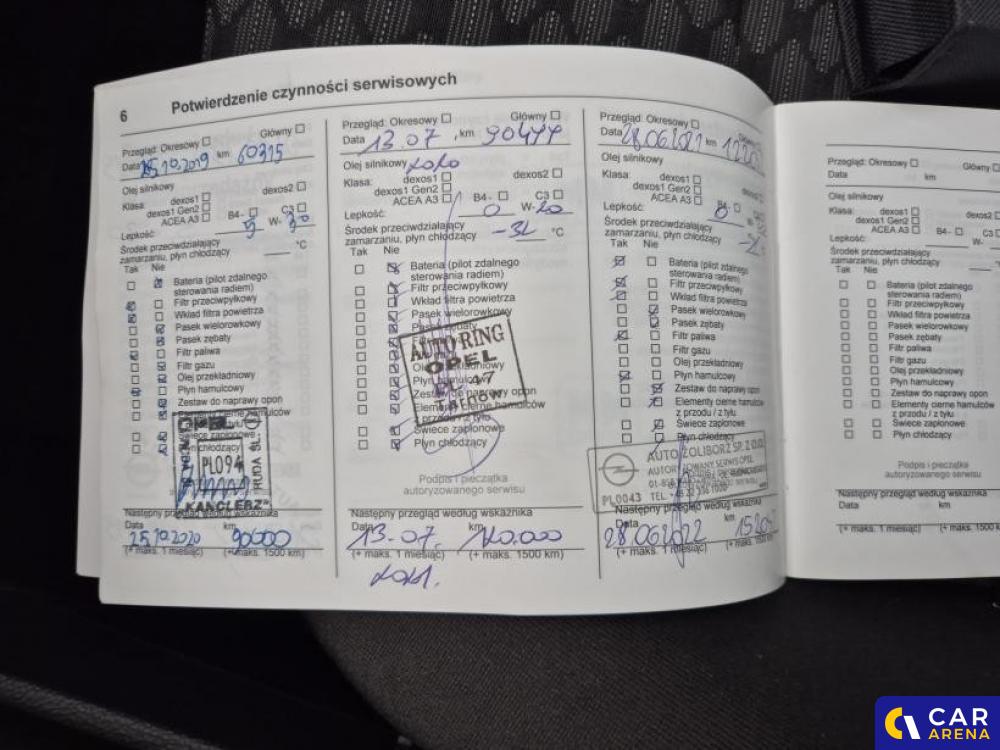 6 Potwierdzenie czynności serwisowych
Przegląd: Okresowy Główny
Data 25.10.2019 km 60315
Olej silnikowy
Klasa: dexos1 dexos2
dexos1 Gen2
ACEA A3 B4- C3
Lepkość: 5 W- 30
Środek przeciwdziałający
zamarzaniu, płyn chłodzący °C
Tak Nie
Bateria (pilot zdalnego
sterowania radiem)
Filtr przeciwpyłkowy
Wkład filtra powietrza
Pasek wielorowkowy
Pasek zębaty
Filtr paliwa
Filtr gazu
Olej przekładniowy
Płyn hamulcowy
Zestaw do naprawy opon
Elementy cierne hamulców
z przodu / z tyłu
Świece zapłonowe
Płyn chłodzący
OPEL
PL094
RUDA ŚL.
"KANCLERZ"
Następny przegląd według wskaźnika
Data km
25.10.2020 90000
(+ maks. 1 miesiąc) (+ maks. 1500 km)
Przegląd: Okresowy Główny
Data 13.07 , km 90477
2020
Olej silnikowy
Klasa: dexos1 dexos2
dexos1 Gen2
ACEA A3 B4- C3
Lepkość: 0 W- 20
Środek przeciwdziałający
zamarzaniu, płyn chłodzący °C
Tak Nie
Bateria (pilot zdalnego
sterowania radiem)
Filtr przeciwpyłkowy
Wkład filtra powietrza
Pasek wielorowkowy
Pasek zębaty
AUTO RING
OPEL
PL 47
TARNÓW
Olej przekładniowy
Płyn hamulcowy
Zestaw do naprawy opon
Elementy cierne hamulców
z przodu / z tyłu
Świece zapłonowe
Płyn chłodzący
Podpis i pieczątka
autoryzowanego serwisu
Następny przegląd według wskaźnika
Data km
13.07. 120.000
(+ maks. 1 miesiąc) (+ maks. 1500 km)
2021.
Przegląd: Okresowy
Data 28.06.2021 km
Olej silnikowy
Klasa: dexos1 dexos2
dexos1 Gen2
ACEA A3 B4-
Lepkość: 0 W-
Środek przeciwdziałający
zamarzaniu, płyn chłodzący
Tak Nie
Bateria (pilot zdalnego
sterowania radiem)
Filtr przeciwpyłkowy
Wkład filtra powietrza
Pasek wielorowkowy
Pasek zębaty
Filtr paliwa
Filtr gazu
Olej przekładniowy
Płyn hamulcowy
Zestaw do naprawy opon
Elementy cierne hamulców
z przodu / z tyłu
Świece zapłonowe
Płyn chłodzący
AUTO ŻOLIBORZ SP. Z O.O.
AUTORYZOWANY SERWIS OPEL
PL0043 TEL.
Następny przegląd według wskaźnika
Data km
28.06.2022
(+ maks. 1 miesiąc) (+ maks. 1500 km)
Przegląd: Okresowy Główny
Data km
Olej silnikowy
Klasa: dexos1 dexos2
dexos1 Gen2
ACEA A3 B4- C3
Lepkość: W-
Środek przeciwdziałający
zamarzaniu, płyn chłodzący
Tak Nie
Bateria (pilot zdalnego
sterowania radiem)
Filtr przeciwpyłkowy
Wkład filtra powietrza
Pasek wielorowkowy
Pasek zębaty
Filtr paliwa
Filtr gazu
Olej przekładniowy
Płyn hamulcowy
Zestaw do naprawy opon
Elementy cierne hamulców
z przodu / z tyłu
Świece zapłonowe
Płyn chłodzący
Podpis i pieczątka
autoryzowanego serwisu
Następny przegląd według wskaźnika
Data km
(+ maks. 1 miesiąc) (+ maks. 1500
CAR
ARENA